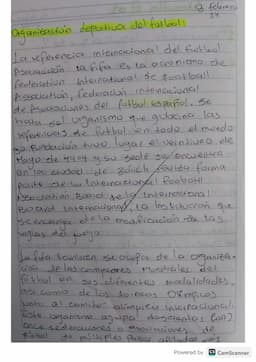 13 febrero
Organización deportiva del futbol:
La referencia internacional del futbol
Asociación la fifa es la acronimo de
federation international de football
Association, federación internacional
de Asociaciones del futbol español. Se
trata del organismo que gobierna las
de futbol en todo el mundo
su fundación tuvo lugar el veintiuno de
Mayo de 1904 y su sede se encuentra
en la ciudad de Suiza forma
parte de la International football
Association Board
Board la institución que
se encarga de la modificación de las
reglas del juego
La fifa tambien se ocupa de la organiza-
ción de las Mundiales del
futbol en sus diferentes modalidades,
asi como de los torneos Olimpicos
junto al comite olimpico internacional.
Este organismo agrupa
asociaciones de
futbol de
Powered by CamScanner